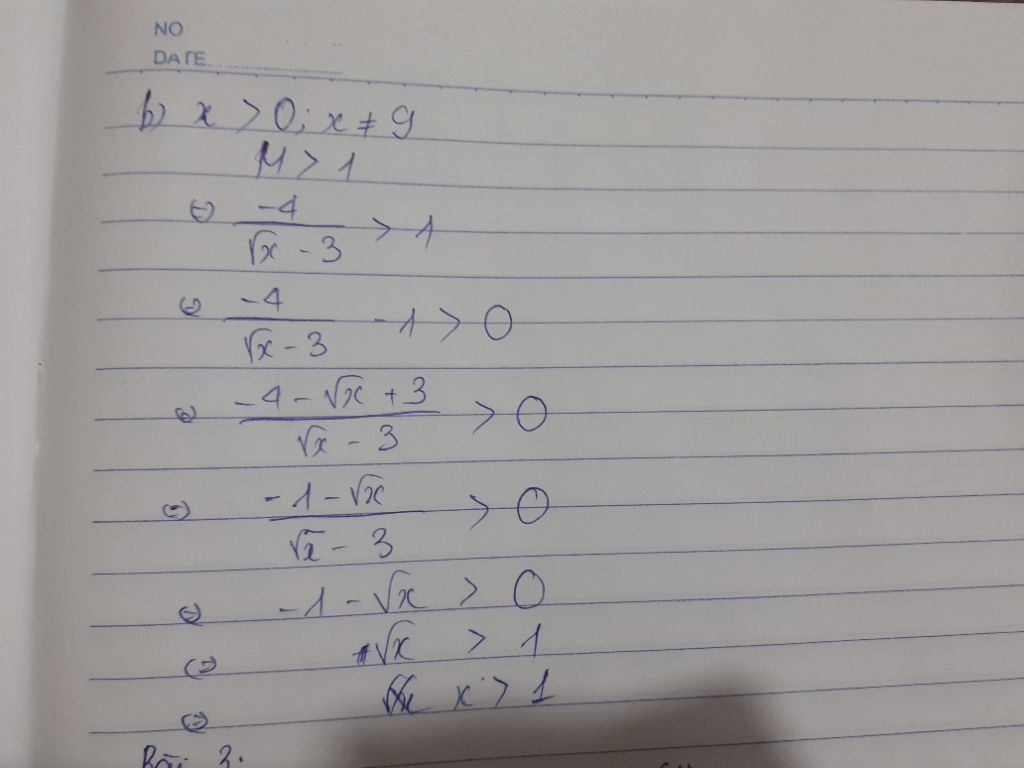 NO
DATE
b) x > 0; x ≠ 9
M > 1
⇔ -4/(√x - 3) > 1
⇔ -4/(√x - 3) - 1 > 0
⇔ (-4 - √x + 3)/(√x - 3) > 0
⇔ (-1 - √x)/(√x - 3) > 0
⇔ -1 - √x > 0
⇔ √x > 1
⇔ x > 1
Bài 3: